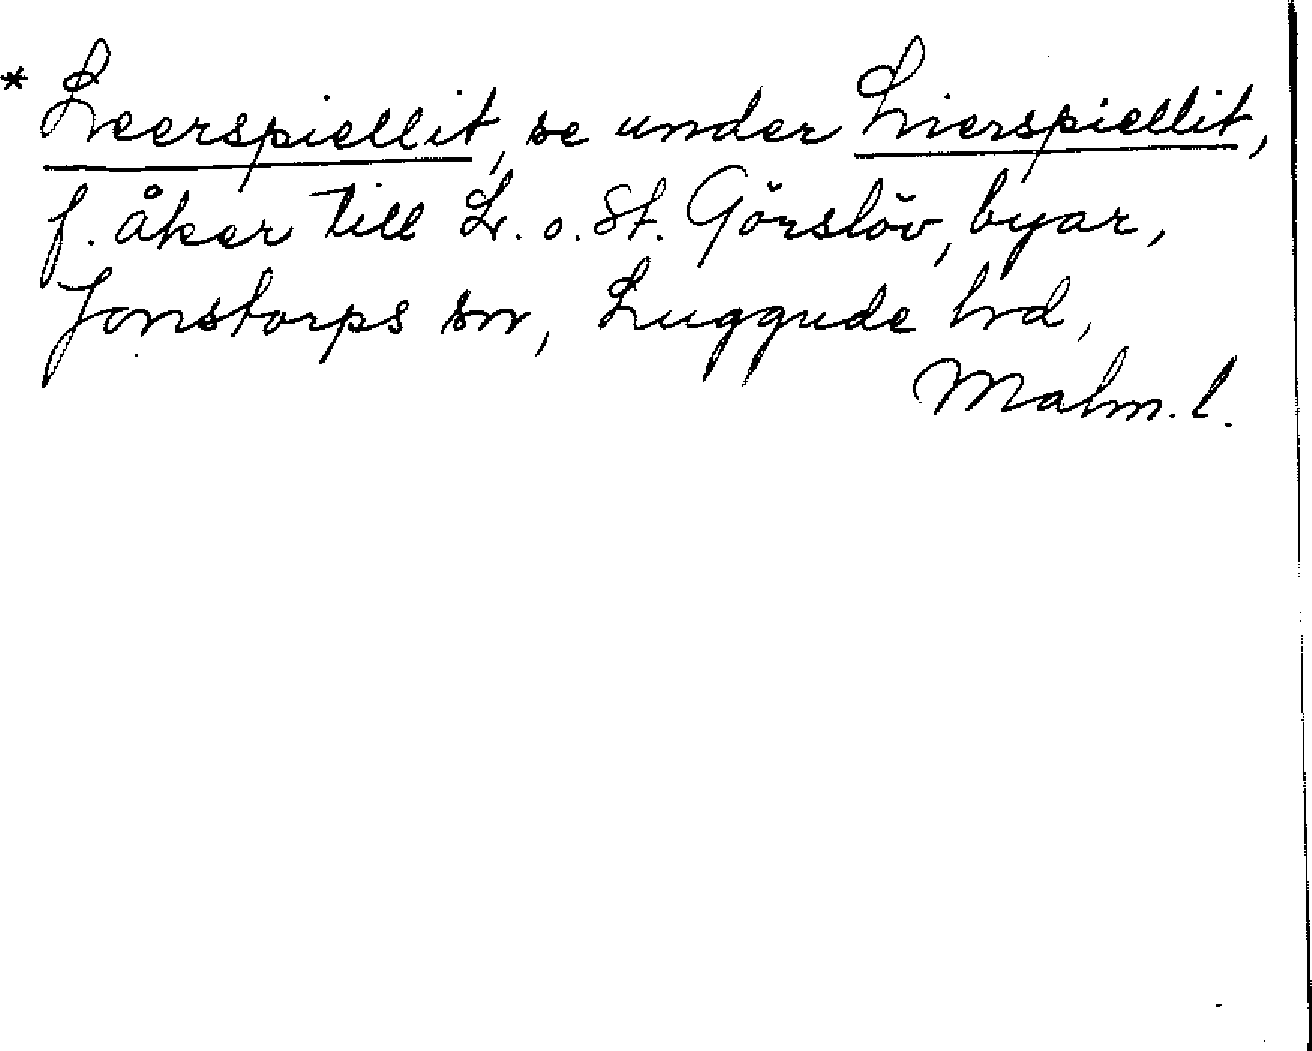 * Leerspiellit, se under Lierspiellit,
f. åker till L. o. St. Görslöv, byar,
Jonstorps sn, Luggude hd,
Malm. l.